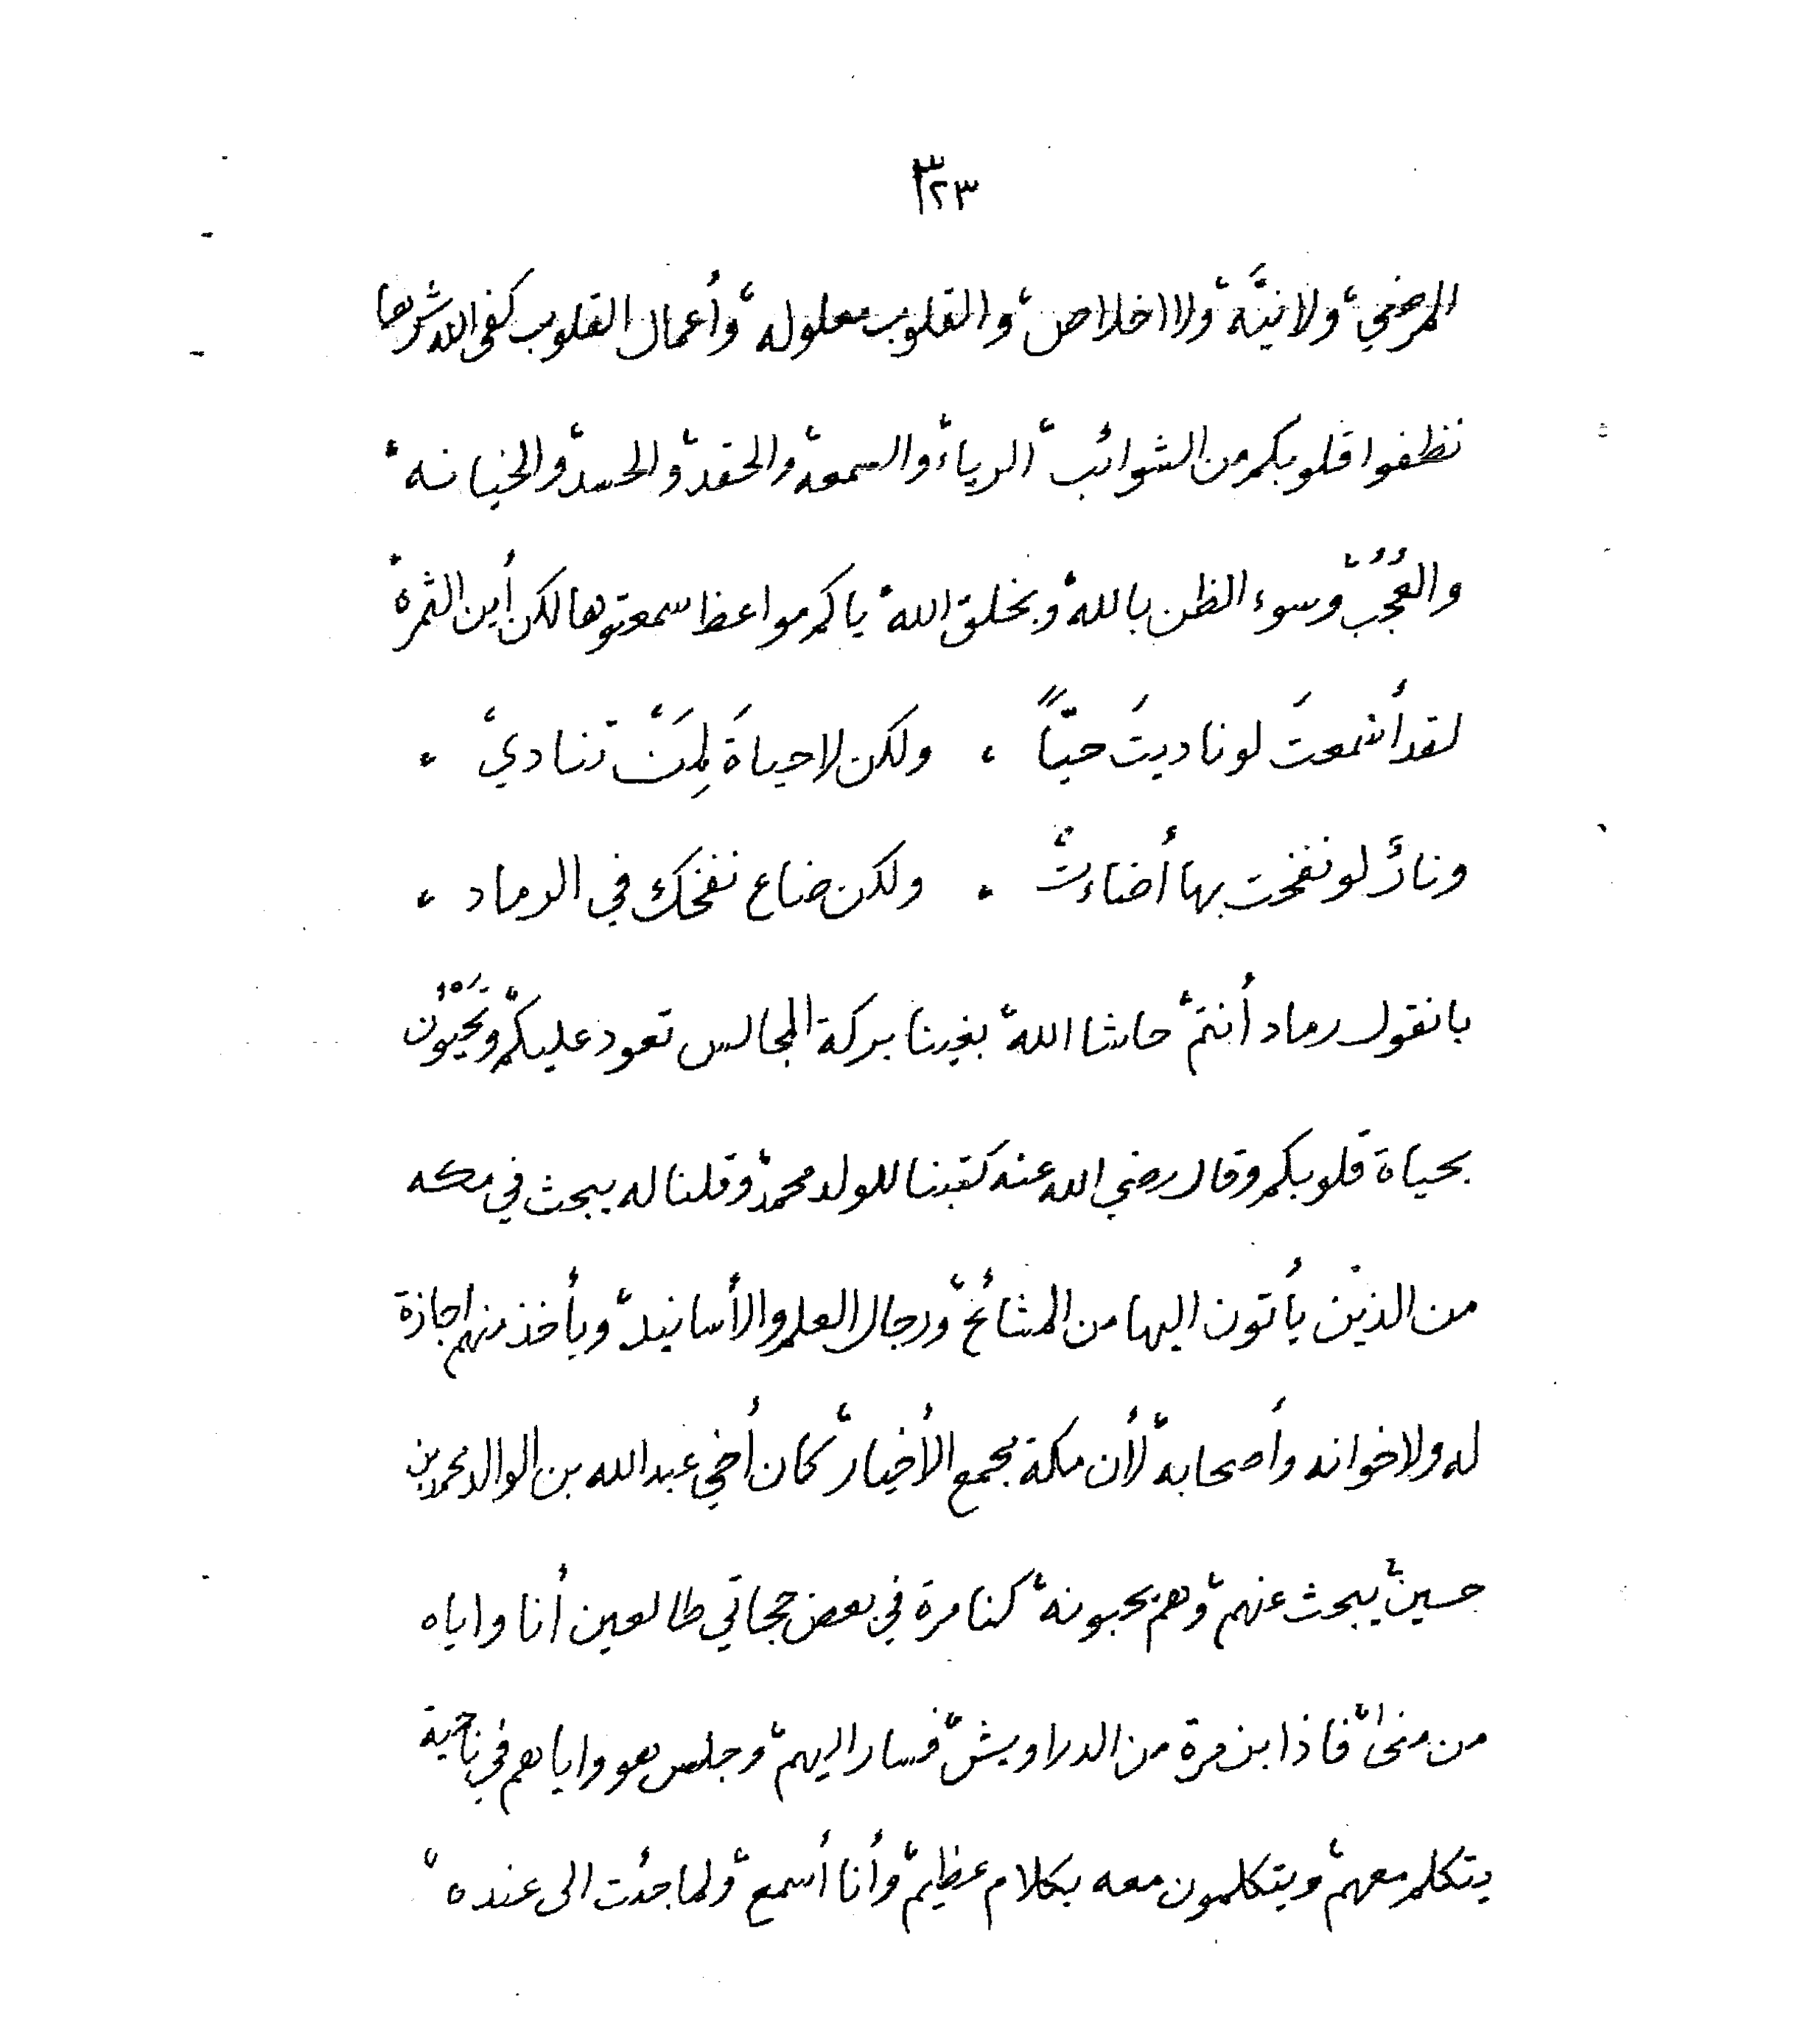 ٣٢٣
المرضي، ولا نيَّة، ولا اخلاص، والقلوب معلوله، وأعمال القلوب كفى الله شرها
نظفوا قلوبكم من الشوائب، الرياء، والسمعة، والحقد، والحسد، والخيانه،
والعُجُب، وسوء الظن بالله، وبخلق الله، ياكم مواعظ سمعتوها لكن أين الثمرة،
لقد أسمعتَ لو ناديتَ حيّاً ، ولكن لا حياةَ لِمَنْ تنادي ،
ونارٌ لو نفخت بها أضاءتْ ، ولكن ضاع نفخك في الرماد ،
بانقول رماد أنتم، حاشا الله، بغينا بركة المجالس تعود عليكم، وتَحْيَوْن
بحياة قلوبكم وقال رضي الله عنه كتبنا للولد محمد، وقلنا له يبحث في مكه
من الذين يأتون اليها من المشائخ، ورجال العلم والأسانيد، ويأخذ منهم اجازة
له ولاخوانه وأصحابه، لأن مكة مجمع الأخيار، كان أخي عبدالله بن الوالد محمد بن
حسين، يبحث عنهم، وهم يحبونه، كنا مرة في بعض حجاتي طالعين أنا واياه
من منى، فاذا بنفرة من الدراويش، فسار اليهم، وجلس هو واياهم في ناحية
يتكلم معهم، ويتكلمون معه بكلام عظيم، وأنا أسمع، ولما جئت الى عنده،